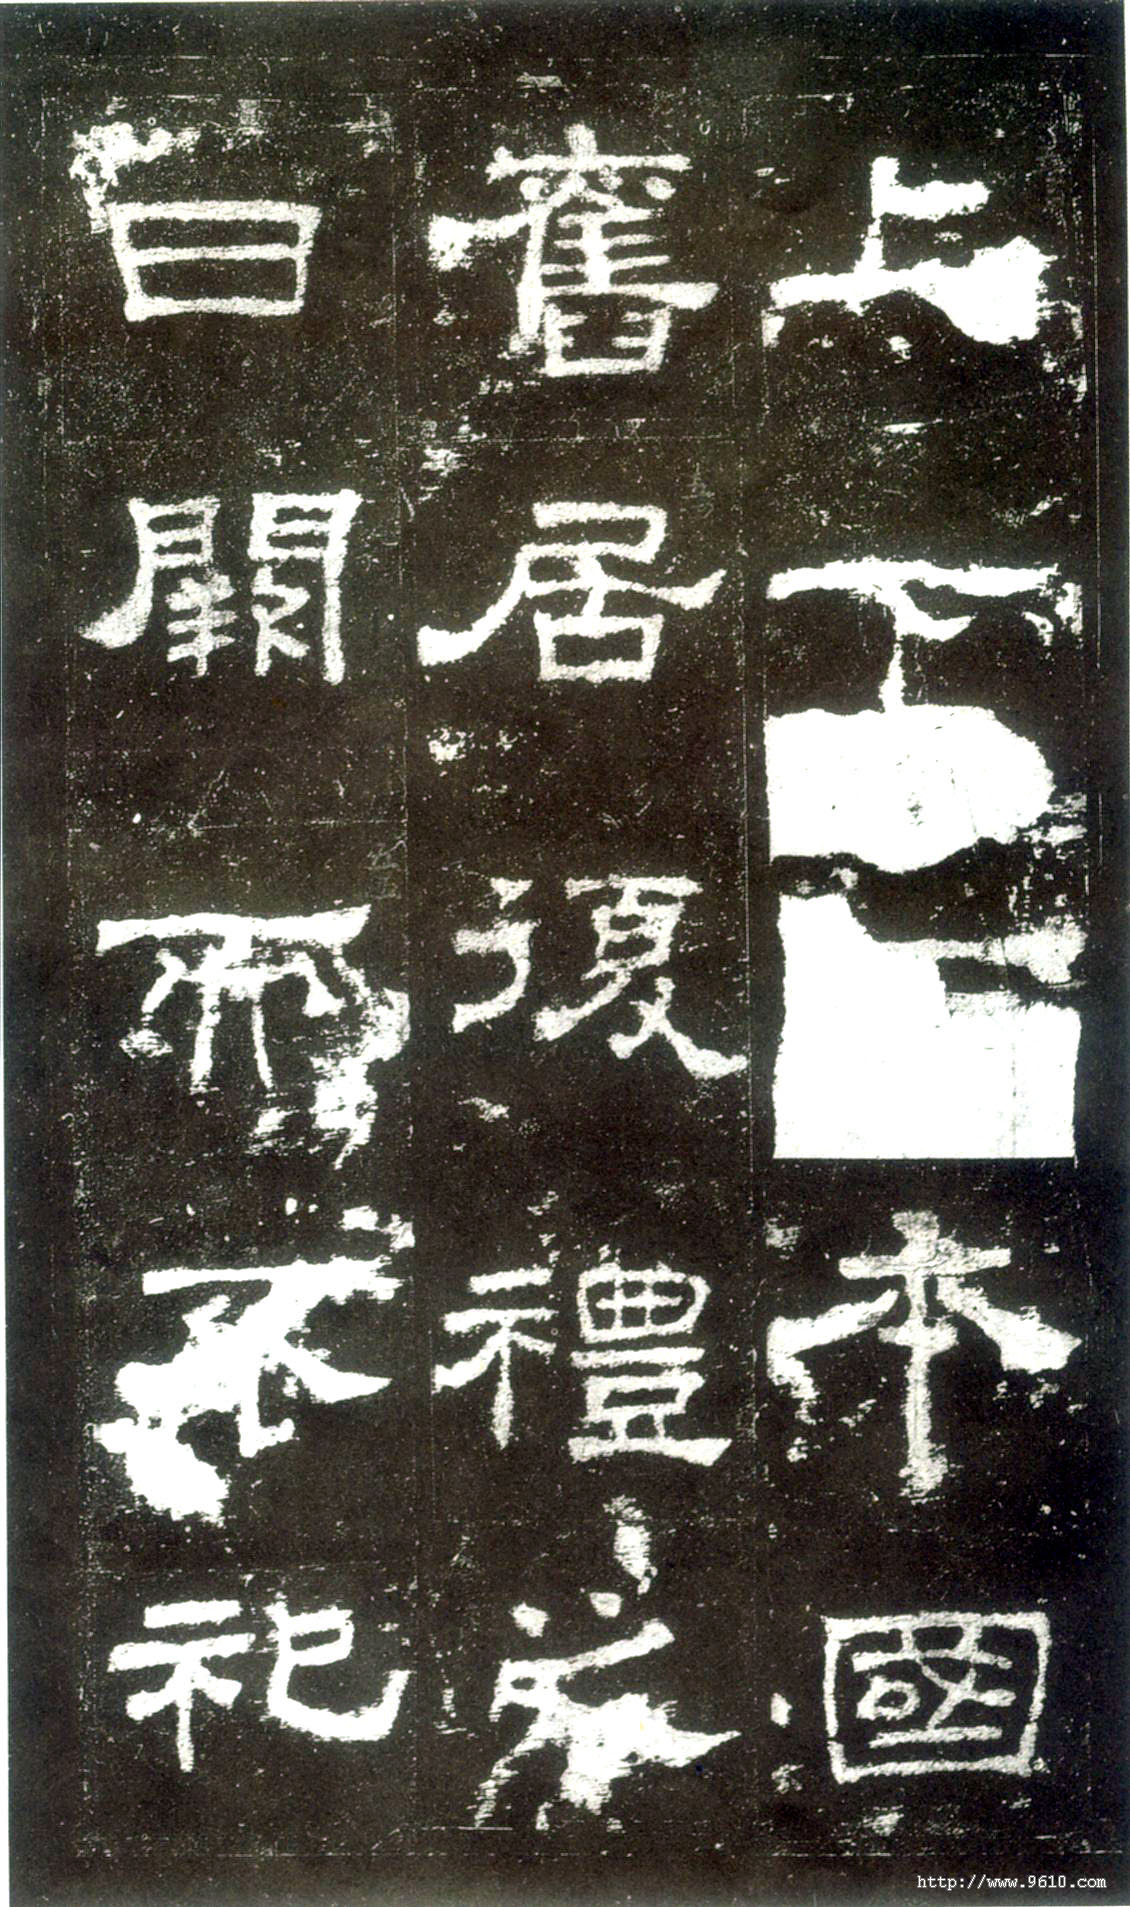 上下本國
舊居復禮之
日闕而不祀
http://www.9610.com